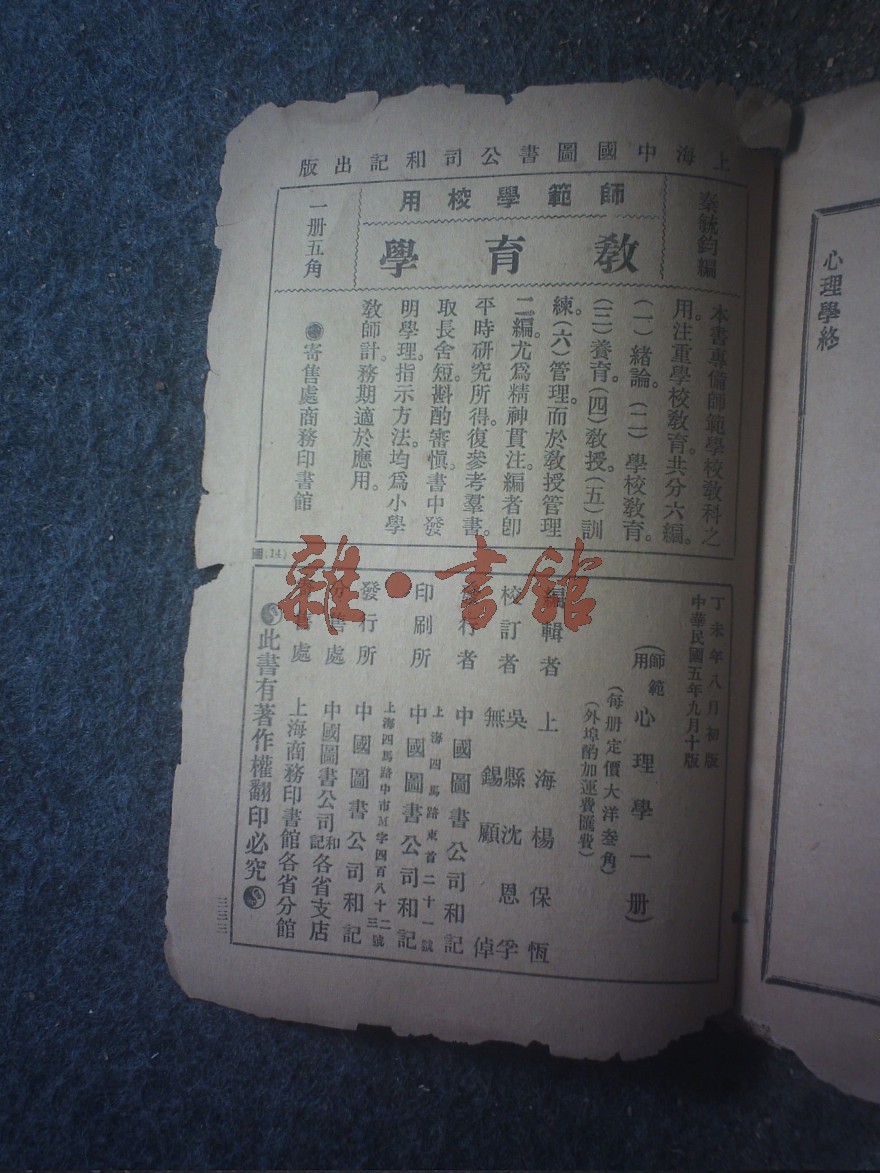 心理學終
上海中國圖書公司和記出版
秦毓鈞編
師範學校用
教育學
一册五角
本書專備師範學校教科之
用。注重學校教育。共分六編。
(一)緒論。(二)學校教育。
(三)養育。(四)教授。(五)訓
練。(六)管理。而於教授管理
二編。尤爲精神貫注。編者卽
平時硏究所得。復參考羣書。
取長舍短。斟酌審愼。書中發
明學理。指示方法。均爲小學
教師計。務期適於應用。
寄售處商務印書館
丁未年八月初版
中華民國五年九月十版
(師範用心理學一册)
(每册定價大洋叁角)
(外埠酌加運費匯費)
編輯者 上海楊保恆
校訂者 吳縣沈恩孚
無錫顧倬
發行者 中國圖書公司和記
上海四馬路東首二十一號
印刷所 中國圖書公司和記
上海四馬路中市M字四百八十二三號
發行所 中國圖書公司和記
分售處 中國圖書公司和記各省支店
售處 上海商務印書館各省分館
此書有著作權翻印必究
三三三
雜·書館